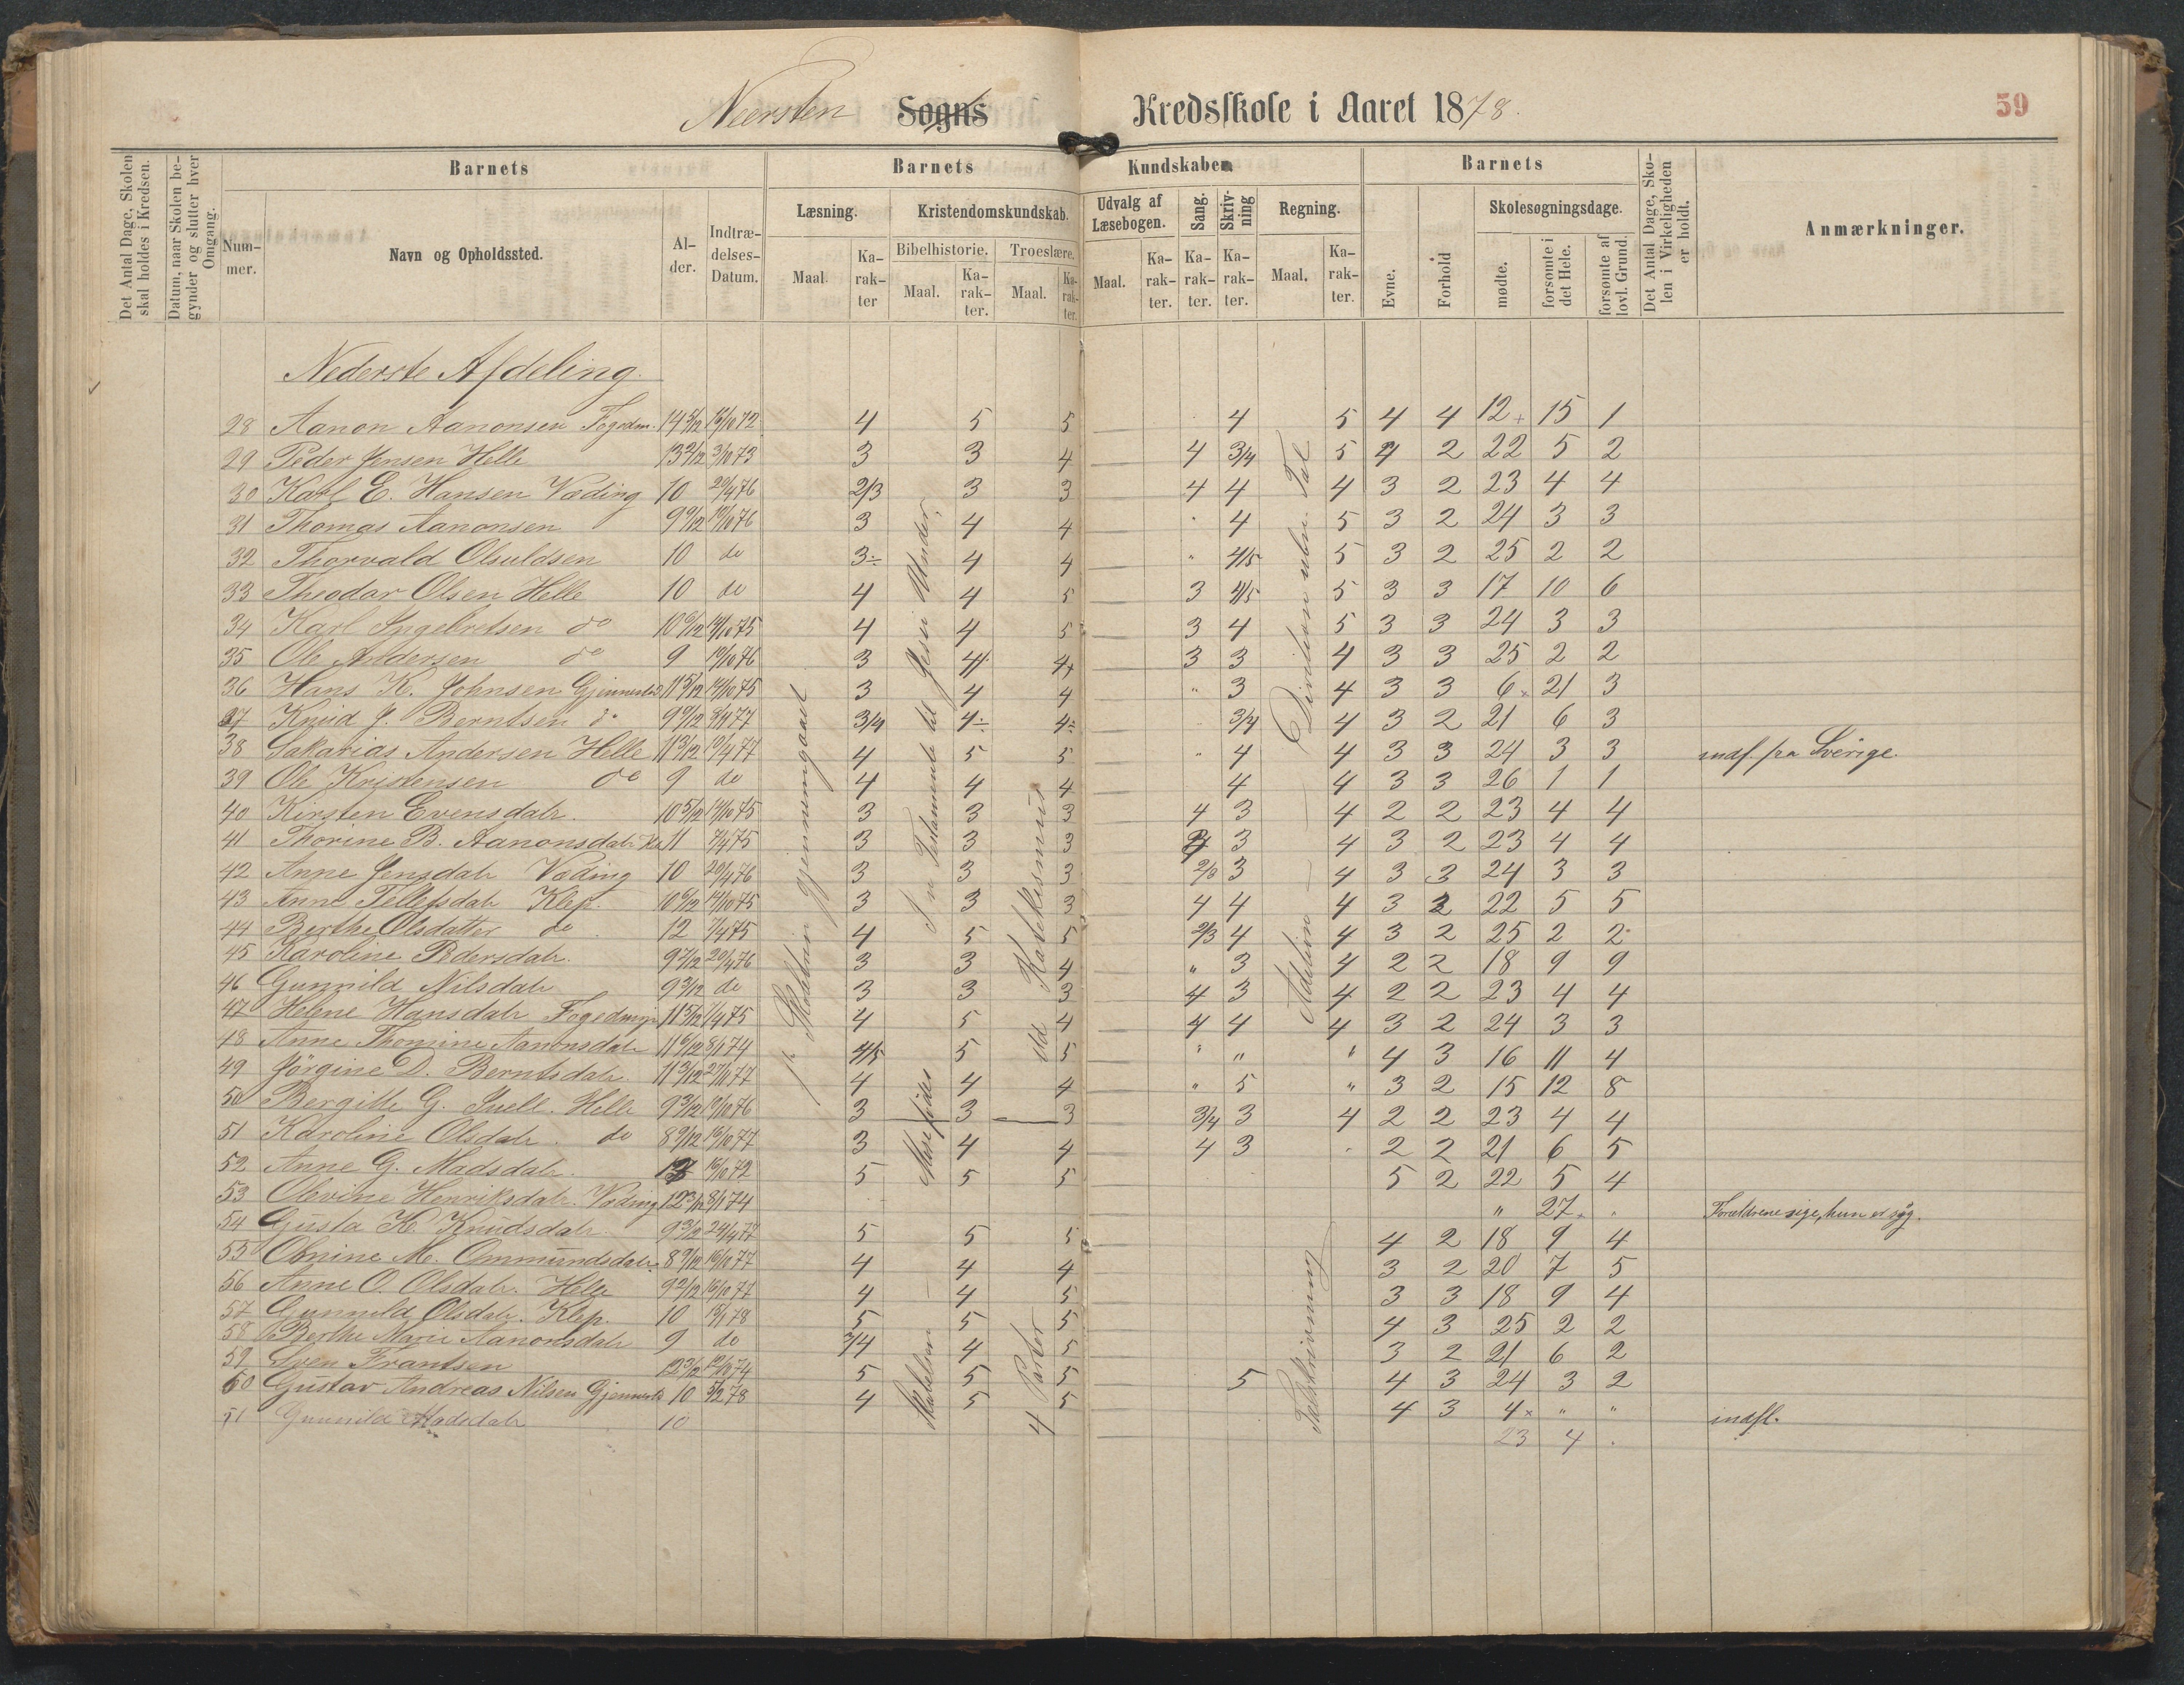 Neersten Sogns Kredsskole i Aaret 1878.
59
Det Antal Dage, Skolen skal holdes i Kredsen.
Datum, naar Skolen begynder og slutter hver Omgang.
Barnets
Barnets Kundskaber.
Barnets
Det Antal Dage, Skolen i Virkeligheden er holdt.
Anmærkninger.
Nummer.
Navn og Opholdssted.
Alder.
Indtrædelses-Datum.
Læsning.
Kristendomskundskab.
Udvalg af Læsebogen.
Sang.
Skrivning
Regning.
Evne.
Forhold
Skolesøgningsdage.
Bibelhistorie.
Troeslære.
Maal.
Karakter
Maal.
Karakter.
Maal.
Karakter.
Maal.
Karakter.
Karakter.
Karakter.
Maal.
Karakter.
mødte.
forsømte i det Hele.
forsømte af lovl. Grund.
Nederste Afdeling.
28 Aanon Aanonsen Fogedm. 14 5/12 15/10 72 4 5 5 4 5 4 4 12+ 15 1
29 Peder Jensen Helle 13 2/12 3/10 73 3 3 4 4 3/4 5 4 2 22 5 2
30 Karl E. Hansen Væding 10 20/4 76 2/3 3 3 4 4 4 3 2 23 4 4
31 Thomas Aanonsen 9 9/12 19/10 76 3 4 4 4 5 3 2 24 3 3
32 Thorvald Olsuldsen 10 do 3÷ 4 4 " 4/5 5 3 2 25 2 2
33 Theodor Olsen Helle 10 do 4 4 5 3 4/5 5 3 3 17 10 6
34 Karl Ingebretsen do 10 6/12 14/10 75 4 4 5 3 4 5 3 3 24 3 3
35 Ole Andersen do 9 19/10 76 3 4 4+ 3 3 4 3 3 25 2 2
36 Hans K. Johnsen 11 5/12 14/10 75 3 4 4 " 3 4 3 3 6x 21 3
37 Knud J. Berntsen do 9 9/12 8/1 77 3/4 4÷ 4÷ 3/4 4 3 2 21 6 3
38 Sakarias Andersen Helle 11 3/12 19/4 77 4 5 5 " 4 4 3 3 24 3 3 indf. fra Sverige.
39 Ole Kristensen do 9 do 4 4 4 4 4 3 3 26 1 1
40 Kirsten Evensdatr. 10 5/12 14/10 75 3 3 3 4 3 4 2 2 23 4 4
41 Thorine B. Aanonsdatr 11 7/4 75 3 3 3 4 3 4 3 2 23 4 4
42 Anne Jensdatr Væding 10 20/4 76 3 3 3 2/3 3 4 3 3 24 3 3
43 Anne Tellefsdatr Klep. 10 6/12 14/10 75 3 3 3 4 4 4 3 2 22 5 5
44 Berthe Olsdatter do 12 7/4 75 4 5 5 2/3 4 4 3 2 25 2 2
45 Karoline Pedersdatr. 9 7/12 20/4 76 3 3 4 " 3 4 2 2 18 9 9
46 Gunnild Nilsdatr 9 3/12 do 3 3 3 4 3 4 2 2 23 4 4
47 Helene Hansdatr Fogedmyr 11 5/12 7/4 75 4 5 4 4 4 4 3 2 24 3 3
48 Anne Thomine Aanonsdatr 11 6/12 8/1 74 4/5 5 5 " " " 4 3 16 11 4
49 Jörgine D. Berntsdatr. 11 3/12 27/11 77 4 4 4 " 5 " 3 2 15 12 8
50 Bergitte G. Helle 9 3/12 19/10 76 3 3 3 3/4 3 4 2 2 23 4 4
51 Karoline Olsdatr. do 8 9/12 16/10 77 3 4 4 4 3 2 2 21 6 5
52 Anne G. Madsdatr. 16/10 72 5 5 5 5 2 22 5 4
53 Olevine Henriksdatr. Væding 12 3/12 8/1 74 " 27 Forældrene sige, hun er syg.
54 Gusta K. Knudsdatr. 9 3/12 24/4 77 5 5 5 4 2 18 9 4
55 M. Ommundsdatr. 8 9/12 16/10 77 4 4 4 3 2 20 7 5
56 Anne O. Olsdatr. Helle 9 2/12 16/10 77 4 4 5 3 3 18 9 4
57 Gunnild Olsdatr. Klep. 10 15/1 78 5 5 5 4 3 25 2 2
58 Berthe Marie Aanonsdatr 9 do 3/4 4 5 3 2 21 6 2
59 Sven Frantsen 12 3/12 12/10 74 5 5 5 5 4 3 24 3 2
60 Gustav Andreas Nilsen 10 5/2 78 4 5 5 4 3 4x " " indfl.
61 Gunnild Madsdatr 10 23 4
Skolebrev gjennemgaaet
Jesu Under,
I n Testamente til
Mose
Skabelsen
odd Katekismus
4 Parter
Addition — Division
Talskrivning